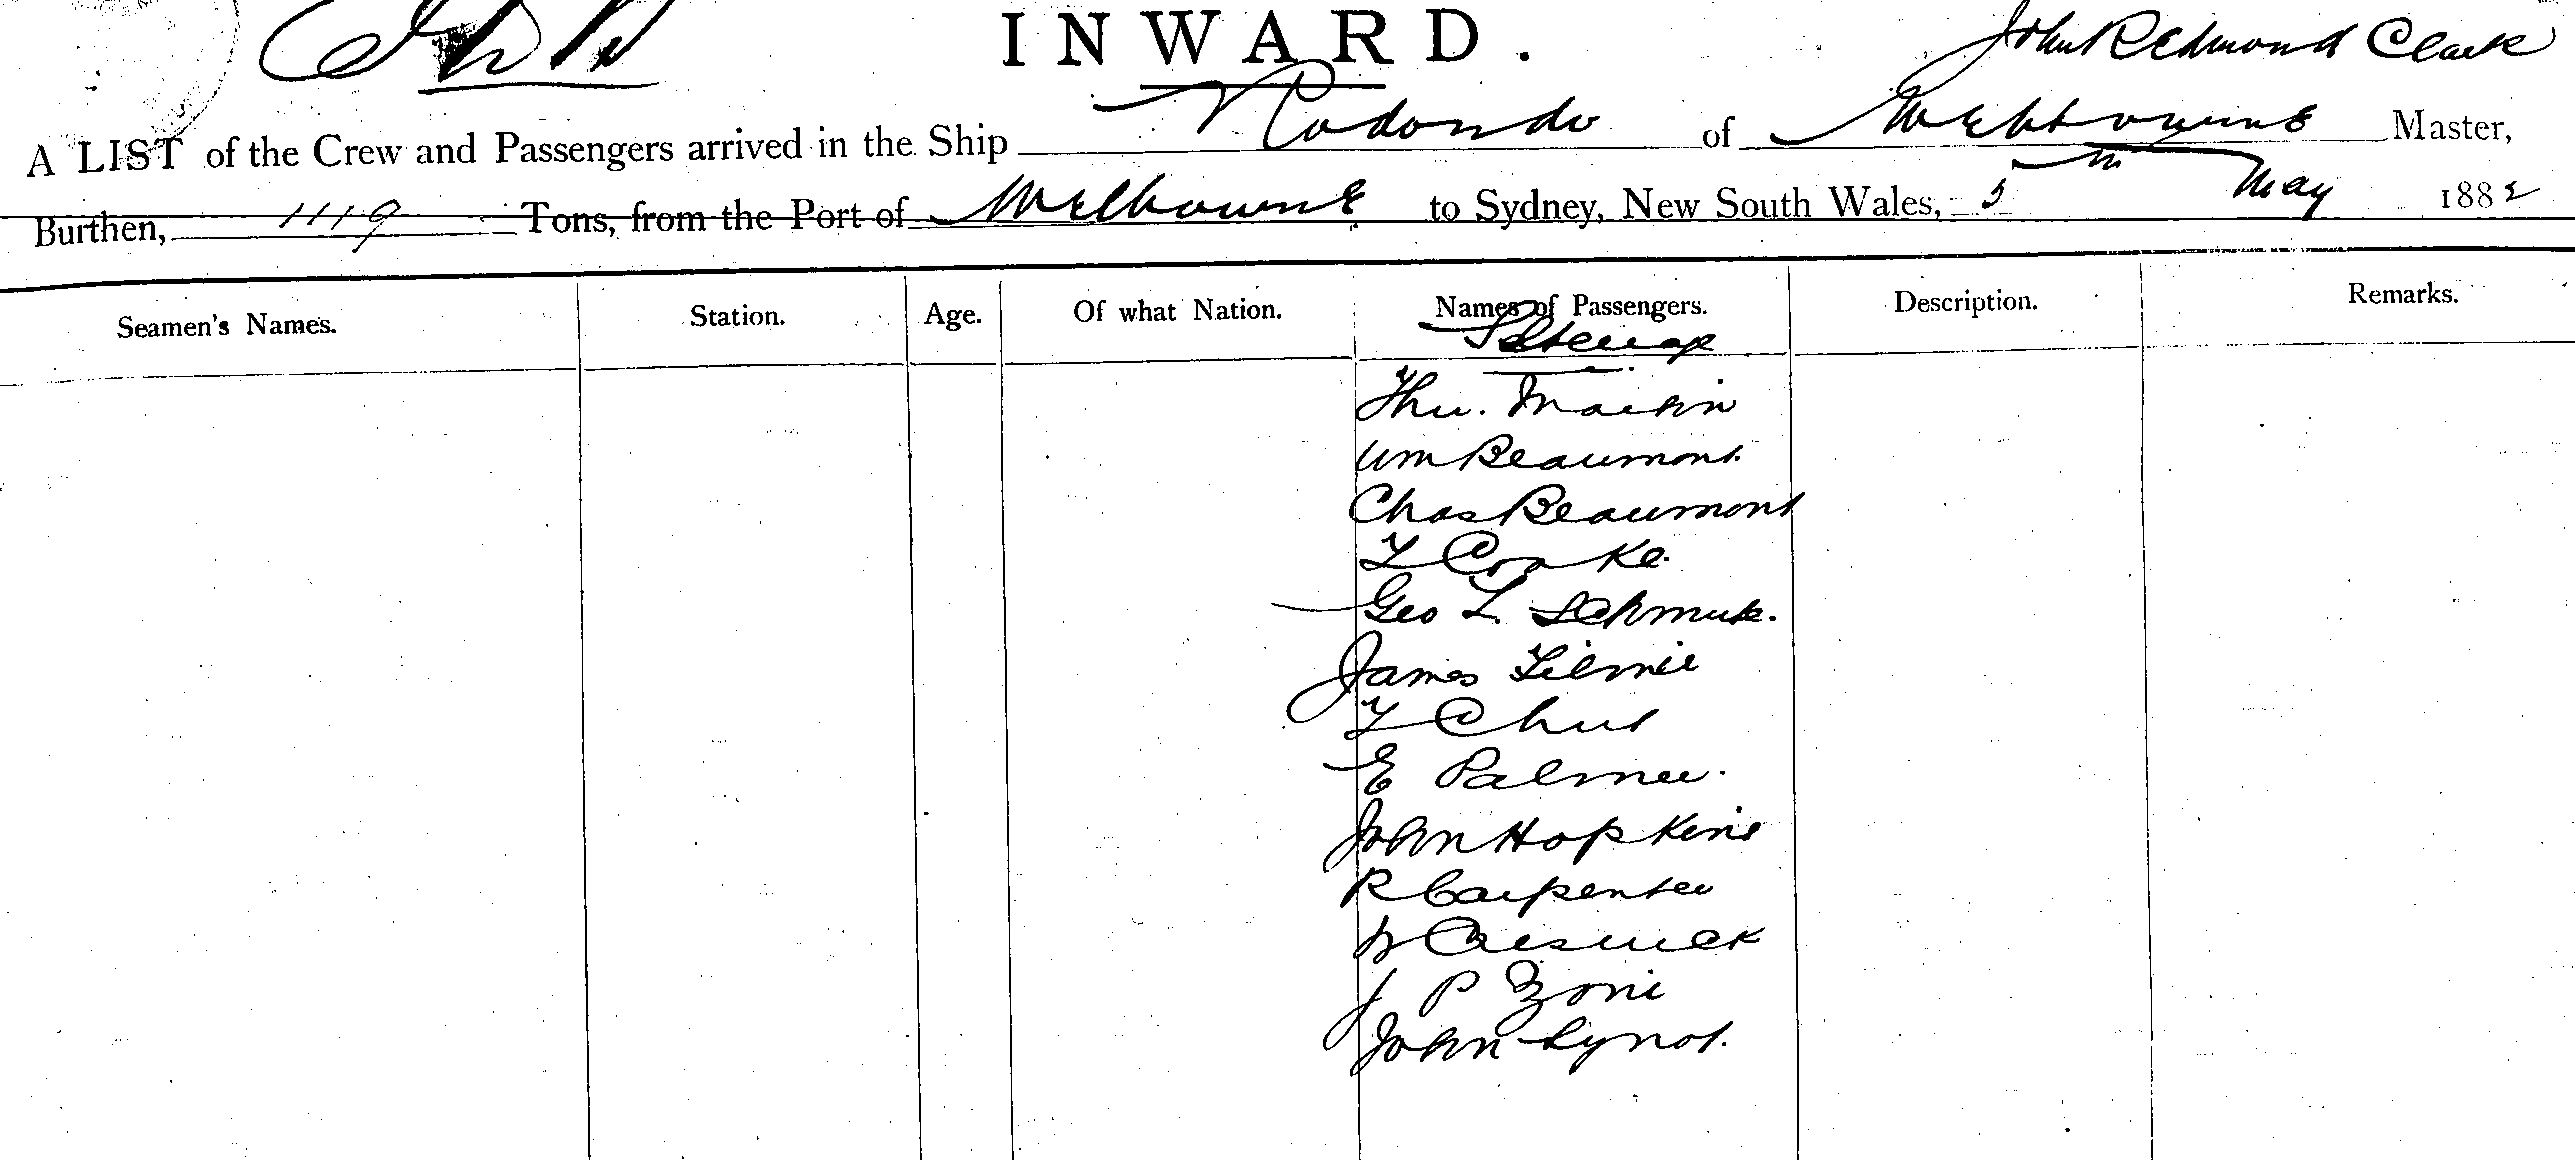 INWARD.
John Redmond Clark
A LIST of the Crew and Passengers arrived in the Ship Rodondo of Melbourne Master,
Burthen, 1119 Tons, from the Port of Melbourne to Sydney, New South Wales, 5th May 1882
Seamen's Names. Station. Age. Of what Nation. Names of Passengers. Description. Remarks.
Steerage
Thos. Martin
Wm Beaumont
Chas Beaumont
T Cooke
Geo L.
James
T
E Palmer
John Hopkins
R Carpenter
W Creswick
J P
John Lynot.